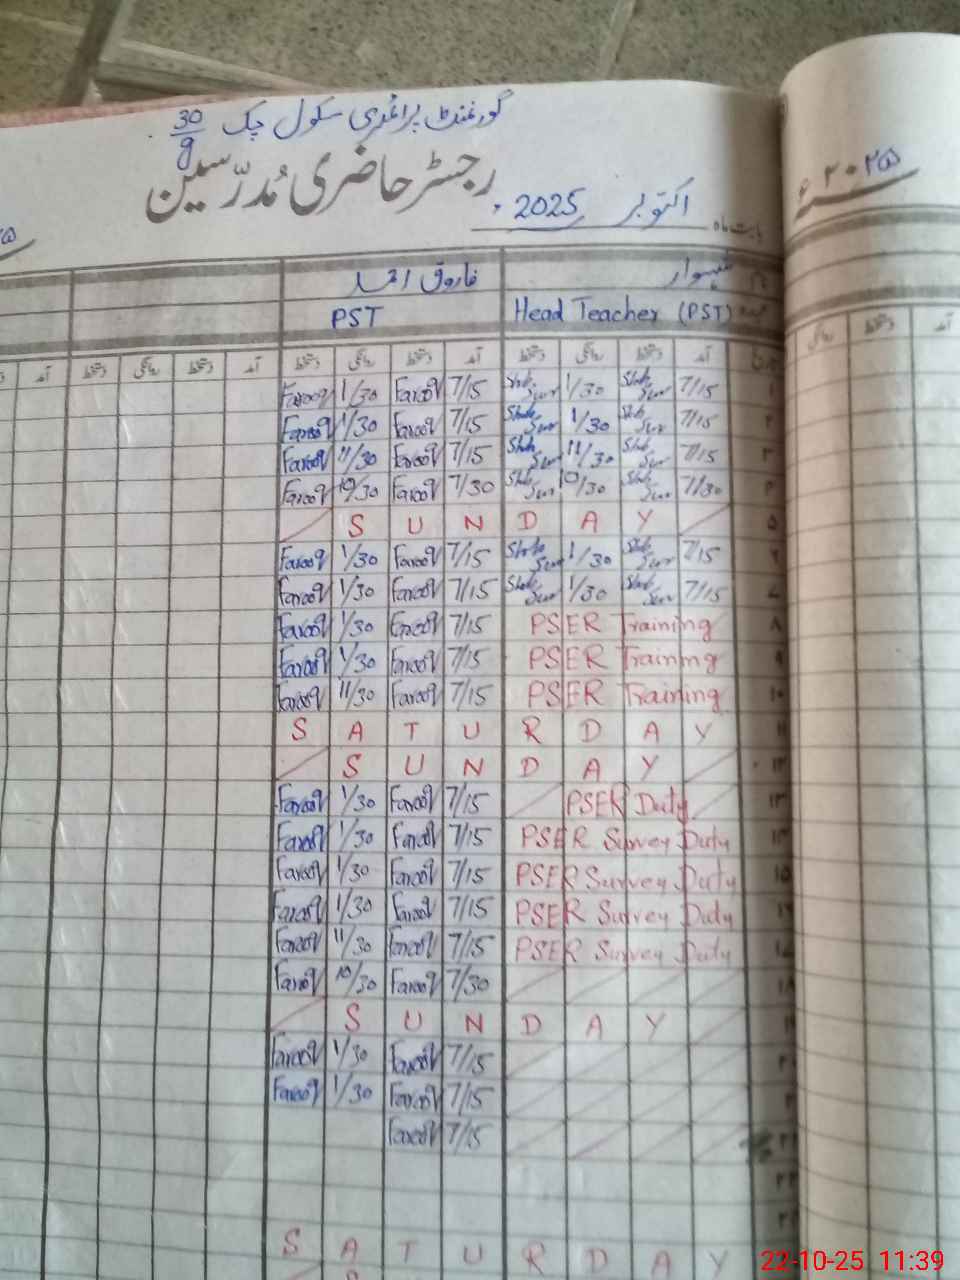 گورنمنٹ پرائمری سکول چک 30/g
رجسٹر حاضری مُدرّسین
۲۰۲۵ء
بابت ماہ اکتوبر 2025ء
فاروق احمد
Head Teacher (PST) PST
آمد دستخط روانگی دستخط آمد دستخط روانگی دستخط آمد دستخط روانگی دستخط آمد
۱ 7/15 1/30 7/15 Farooq 1/30 Farooq
۲ 7/15 1/30 7/15 Farooq 1/30 Farooq
۳ 7/15 11/30 7/15 Farooq 11/30 Farooq
۴ 7/30 10/30 7/30 Farooq 10/30 Farooq
۵ S U N D A Y
۶ 7/15 1/30 7/15 Farooq 1/30 Farooq
۷ 7/15 1/30 7/15 Farooq 1/30 Farooq
۸ PSER Training 7/15 Farooq 1/30 Farooq
۹ PSER Training 7/15 Farooq 1/30 Farooq
۱۰ PSER Training 7/15 Farooq 11/30 Farooq
۱۱ S A T U R D A Y
۱۲ S U N D A Y
۱۳ PSER Duty 7/15 Farooq 1/30 Farooq
۱۴ PSER Survey Duty 7/15 Farooq 1/30 Farooq
۱۵ PSER Survey Duty 7/15 Farooq 1/30 Farooq
۱۶ PSER Survey Duty 7/15 Farooq 1/30 Farooq
۱۷ PSER Survey Duty 7/15 Farooq 11/30 Farooq
۱۸ 7/30 Farooq 10/30 Farooq
۱۹ S U N D A Y
۲۰ 7/15 Farooq 1/30 Farooq
7/15 Farooq 1/30 Farooq
۲۲ 7/15 Farooq
۲۳
S A T U R D A Y
22-10-25 11:39